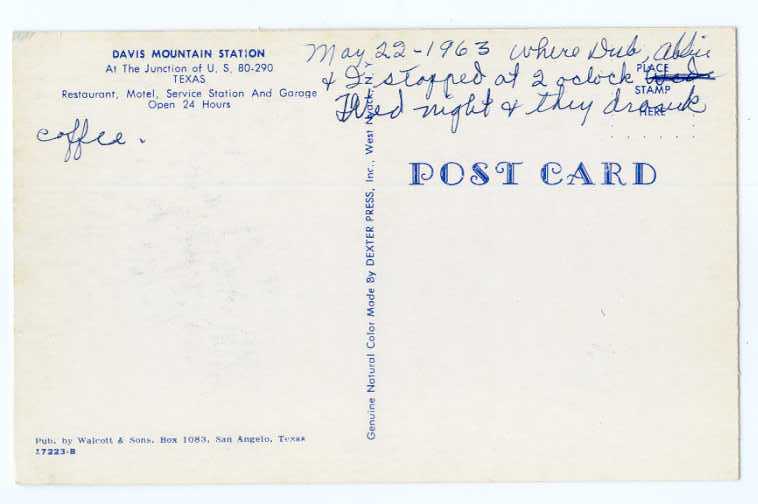 DAVIS MOUNTAIN STATION
At The Junction of U. S. 80-290
TEXAS
Restaurant, Motel, Service Station And Garage
Open 24 Hours
May 22-1963 where Dub,
& I stopped at 2 oclock
Wed night & they drank
coffee.
PLACE
STAMP
HERE
POST CARD
Genuine Natural Color Made By DEXTER PRESS, Inc., West Nyack, N.Y.
Pub. by Walcott & Sons, Box 1083, San Angelo, Texas
17223-B